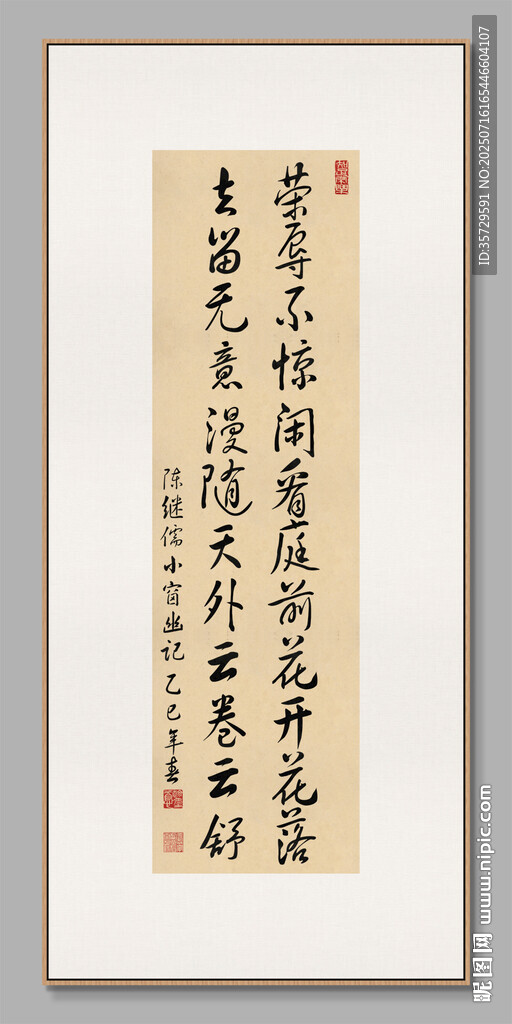 荣辱不惊闲看庭前花开花落
去留无意漫随天外云卷云舒
陈继儒小窗幽记乙巳年春
ID:35729591 NO:20250716165446604107
昵图网 www.nipic.com